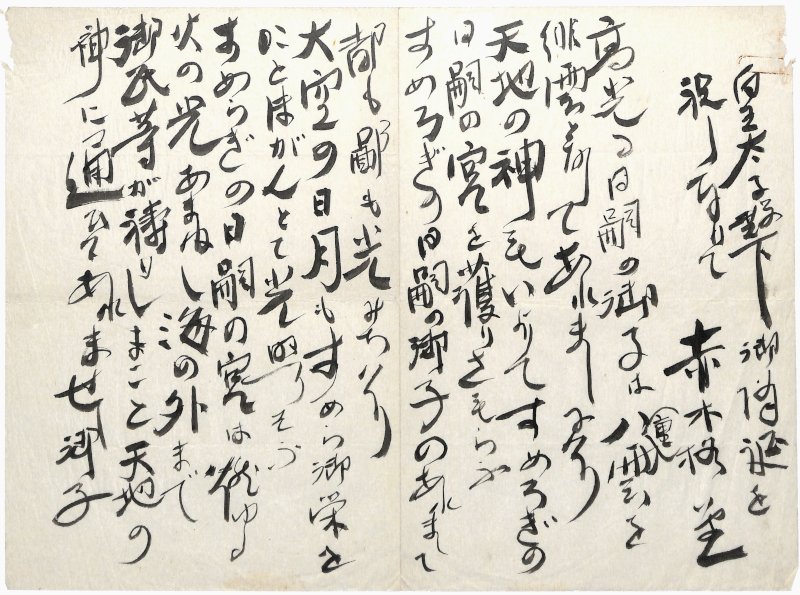 皇太子殿下御降誕を
祝しなりて
赤木格堂
高光る日嗣の御子は八雲を
排雲別りてあれましにけり
天地の神もいよりてすめろぎの
日嗣の宮を護りさもらふ
すめろぎの日嗣の御子のあれまして
都も鄙も光みちけり
大空の日月もすめら御栄を
にとほがんとて光照りそふ
すめらぎの日嗣の宮は燃ゆる
火の光あまねし海の外まで
御民等が祷りしまこと天地の
神に通ひてあれませ御子